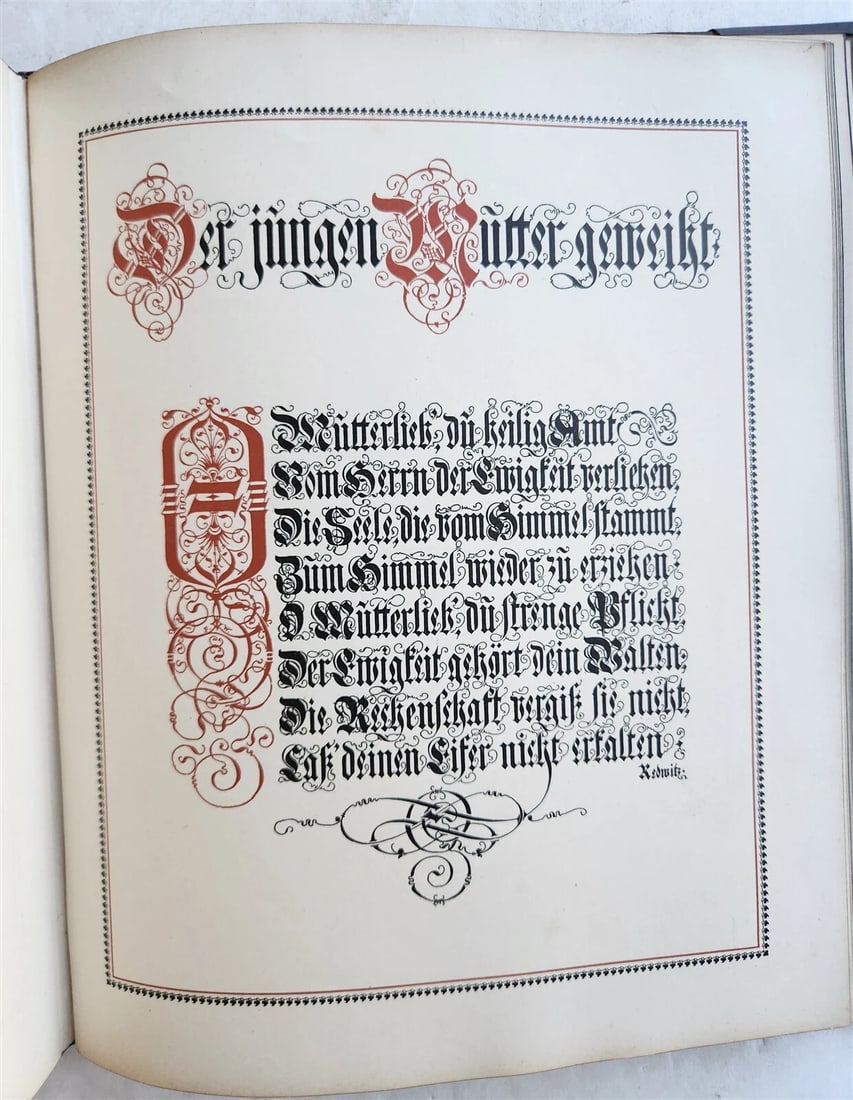 Der jungen Mutter geweiht.
O Mutterlieb', du heilig Amt
Vom Herrn der Ewigkeit verliehen,
Die Seele, die vom Himmel stammt,
Zum Himmel wieder zu erziehen:
O Mutterlieb', du strenge Pflicht,
Der Ewigkeit gehört dein Walten;
Die Rechenschaft vergiß sie nicht,
Laß' deinen Eifer nicht erkalten:
Redwitz: